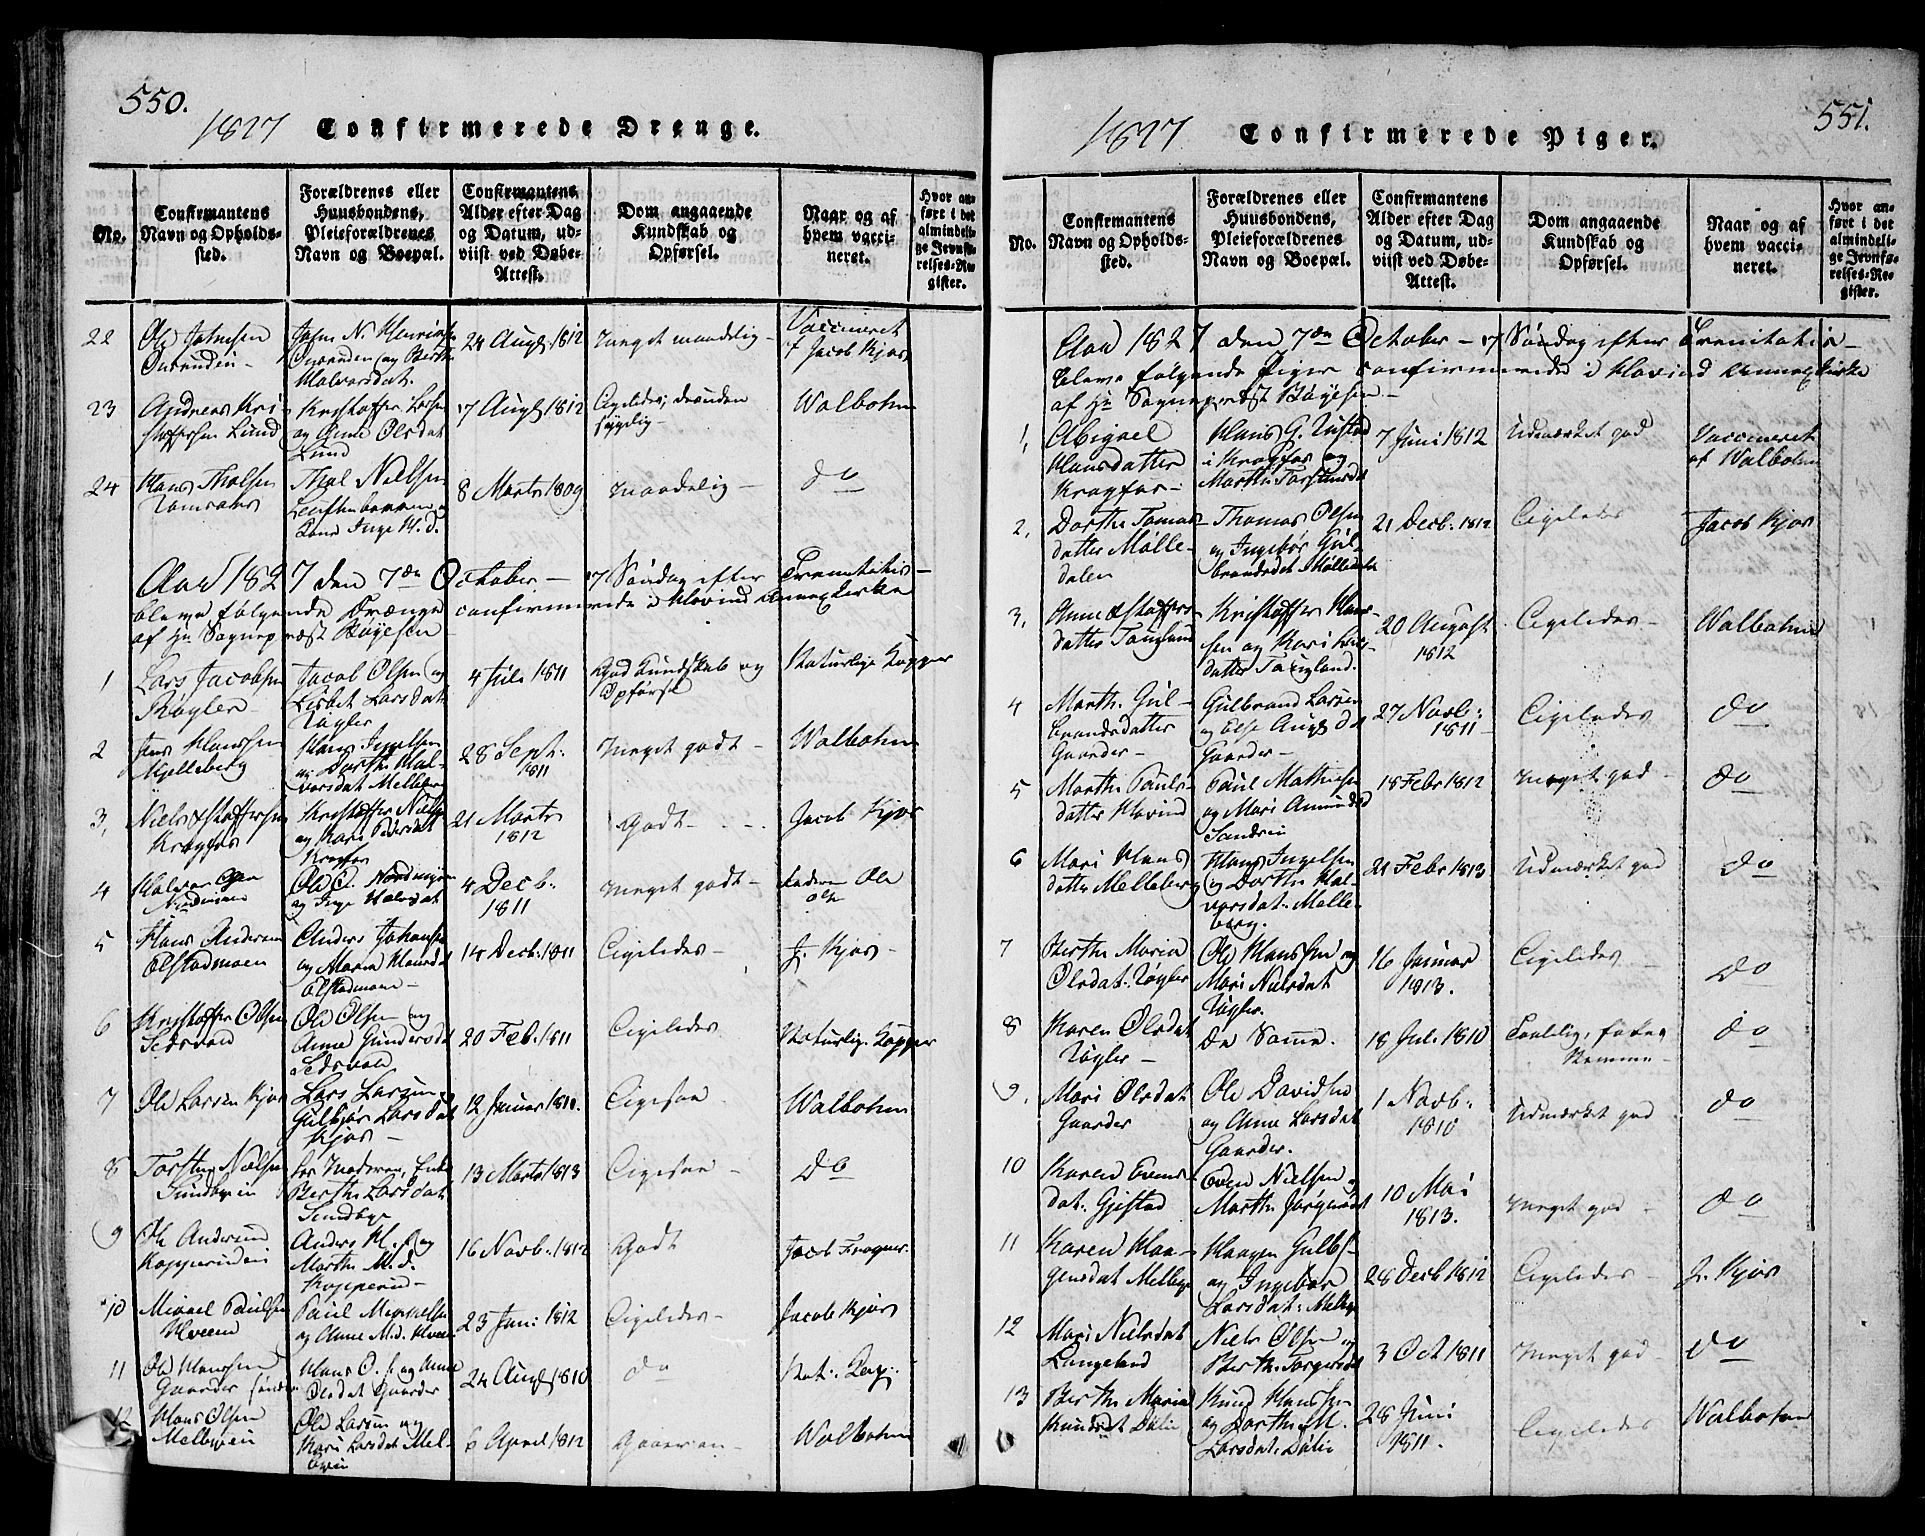 550.
1827 Confirmerede Drenge.
No.
Confirmantens Navn og Opholds-sted.
Forældrenes eller Huusbondens, Pleieforældrenes Navn og Boepæl.
Confirmantens Alder efter Dag og Datum, ud-viist ved Døbe-Attest.
Dom angaaende Kundskab og Opførsel.
Naar og af hvem vacci-neret.
Hvor an-ført i det almindeli-ge Jevnfø-relses-Re-gister.
22 Ole Johnsen
John N.
Halvorsdat.
24 Augs 1812
meget maadelig -
Vaccineret
f Jacob Kjos
23 Andreas Kri-
stoffersen Lund
Kristoffer Larsen
og Anne Olsdat
Lund
7 Augs 1812
Ligeledes, desuden
sygelig -
Walbohm
24 Hans Tholsen
Thol Nielsen
Kone Inge H. d.
8 Marts 1809
maadelig -
do
Aar 1827 den 7de October - 17 Søndag efter Trenitatis -
bleve følgende Drænge confirmerede i Hovind Annexkirke
af Hr Sognepræst Bøyesen -
1 Lars Jacobsen
Røgler
Jacob Olsen og
Lisbet Larsdat
Røgler
4 Juli 1811
God Kundskab og
Opførsel
Naturlige Kopper
2 Jens Hanssen
Melleberg
Hans Ingelsen
og Dorthe Hal-
vorsdat Melleberg
28 Sept:
1811
Meget godt -
Walbohm
3, Niels Kstoffersen
Kragfos
Kristoffer Niels
og Kari Pedersdat
Kragfos
21 Marts
1812
Godt - - -
Jacob Kjos
4 Halvor Olsen
Nordmoen
Ole O. Nordmoen
og Inge Halvsdat
4 Decb.
1811
Meget godt -
Ole
Olsen
5 Hans Andersen
Ølstadmoen
Anders Johansen
og Maria Hansdat
Ølstadmoen -
14 Decb. 1811
Ligeledes -
J. Kjos
6 Kristoffer Olsen
Sedsvold
Ole Olsen og
Anne Gundersdat
Sedsvold
20 Feb. 1811
Ligeledes
Naturlig. Kopper
7 Ole Larsen Kjos
Lars Larsen
Gulbjør Larsdat
Kjos -
12 Januar 1811.
Ligesaa
Walbohm
8 Torsten Nielsen
Sundbyeie
Berthe Larsdat
Sundbye
13 Marts 1813
Ligesaa -
do
9 Ole Andersen
Kopperudeie
Anders H. s. og
Marthe M. d.
Kopperud -
16 Novb. 1812
Godt
Jacob Frogner
10 Mikael Paulsen
Hveem
Paul Mikkelsen
og Anne M. d. Hveem
23 Juni 1812
Ligeledes -
Jacob Kjos
11 Ole Hanssen
Gaarder søndre
Hans O. s. og Anne
Olsdat Gaarder
24 Augs 1810
do
Nat: Kop:
12 Hans Olsen
Melbyeie
Ole Larsen og
Kari Larsdat Mel-
byeie
6 April 1812
Walbohm
551.
1827 Confirmerede Piger.
No.
Confirmantens Navn og Opholds-sted.
Forældrenes eller Huusbondens, Pleieforældrenes Navn og Boepæl.
Confirmantens Alder efter Dag og Datum, ud-viist ved Døbe-Attest.
Dom angaaende Kundskab og Opførsel.
Naar og af hvem vacci-neret.
Hvor an-ført i det almindeli-ge Jevnfø-relses-Re-gister.
Aar 1827 den 7de October - 17 Søndag efter Trenitatis -
bleve følgende Piger confirmerede i Hovind Annexkirke
af Hr Sognepræst Bøyesen -
1, Abigael
Hansdatter
Kragfos -
Hans G. Tustad
i Kragfos og
Marthe Torstensdat
7 Juni 1812
Udmærket god
Vaccineret
af Walbohm
2, Dorthe Tomas
datter Mølle-
dalen
Thomas Olsen
og Ingebør Gul-
brandsdat Mølledalen
21 Decb. 1812
Ligeledes
Jacob Kjos
3, Anne Kstoffers
datter Tougland
Kristoffer Han-
sen og Kari Lars-
datter Tougland.
20 August
1812
Ligeledes -
Walbohm
4 Marthe Gul-
brandsdatter
Gaarder -
Gulbrand Larsen
og Else Augs dat
Gaarder -
27 Novb:
1811 -
Ligeledes
do
5 Marthe Pauls-
datter Hovind
Paul Mathiesen
og Mari Amundsd
18 Febr 1812
meget god -
do
6 Mari Hans
datter Melleberg
Hans Ingelsen
og Dorthe Hal-
vorsdat: Melle-
berg.
21 Febr 1813
Udmærket god
do
7 Berthe Maria
Olsdat. Røgler
Ole Hanssen og
Mari Nielsdat
Røgler.
16 Januar
1813.
Ligeledes -
do
8 Karen Olsdat
Røgler -
De Samme.
18 Jul. 1810
do
9. Mari Olsdat
Gaarder
Ole Davidsen
og Anne Larsdat
Gaarder.
1 Novb.
1810
Udmærket god
do
10 Karen Evens-
dat. Gjestad
Even Nielsen og
Marthe Jørgensdat
10 Mai
1813.
meget god -
do
11 Karen Haa-
gensdat Melbye
Haagen Gulbs.
og Ingebør
Larsdat: Melbye
28 Decb 1812
Ligeledes -
J. Kjos
12 Mari Nielsdat
Langeland
Niels Olsen og
Berthe Torgersdat
3 Oct 1811
meget god
do
13 Berthe Maria
Knudsdat Dølie
Knud Hanssen
og Dorthe M.
Larsdat. Dølie
28 Juni
1811.
Ligeledes
Walbohm